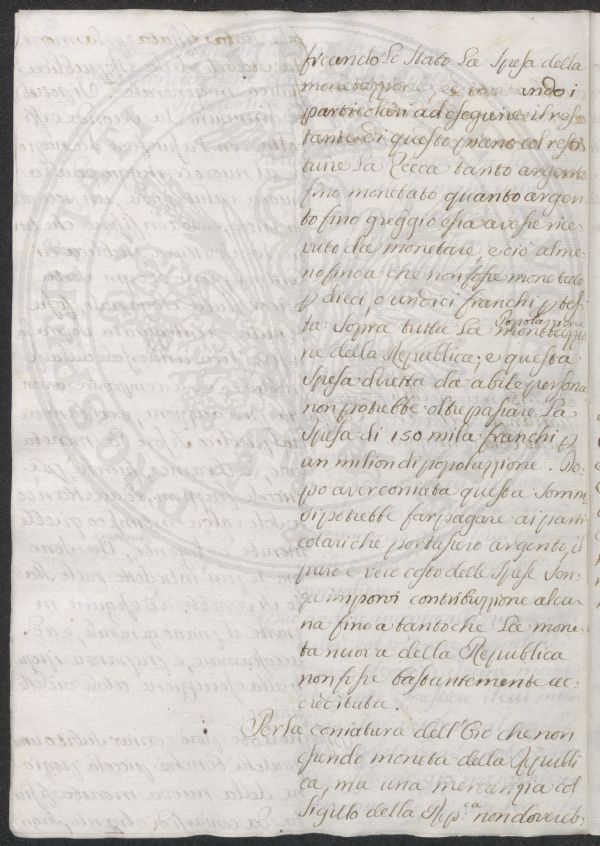 ficando lo Stato la Spesa della
monetazzione, ed ando i
particolari ad eseguire il res-
tante di questo piano col resti-
tuire la Zecca tanto argento
fino monetato quanto argen-
to fino greggio essa avesse rice-
vuto da monetare, e ciò alme-
no fino a che non fosse monetato
p dieci, o undici franchi p tes-
ta sopra tutta la Popolazzione
ne della Repubblica; e questa
Spesa diretta da abile persona
non potrebbe oltrepassare la
Spesa di 150 mila franchi p
un milion di popolazzione. Do-
po aver coniata questa Somma
si potrebbe far pagare ai parti
colari che portassero argento, il
puro e vero costo delle Spese Sen-
za imporvi contribuzzione alcu-
na fino a tanto che la mone-
ta nuova della Republica
non fosse bastantemente ac-
creditata.
Per la coniatura dell'Oro che non
essendo moneta della Republi
ca, ma una mercanzia col
Sigillo della Rep.ca non dovreb-
PROSPERITATI